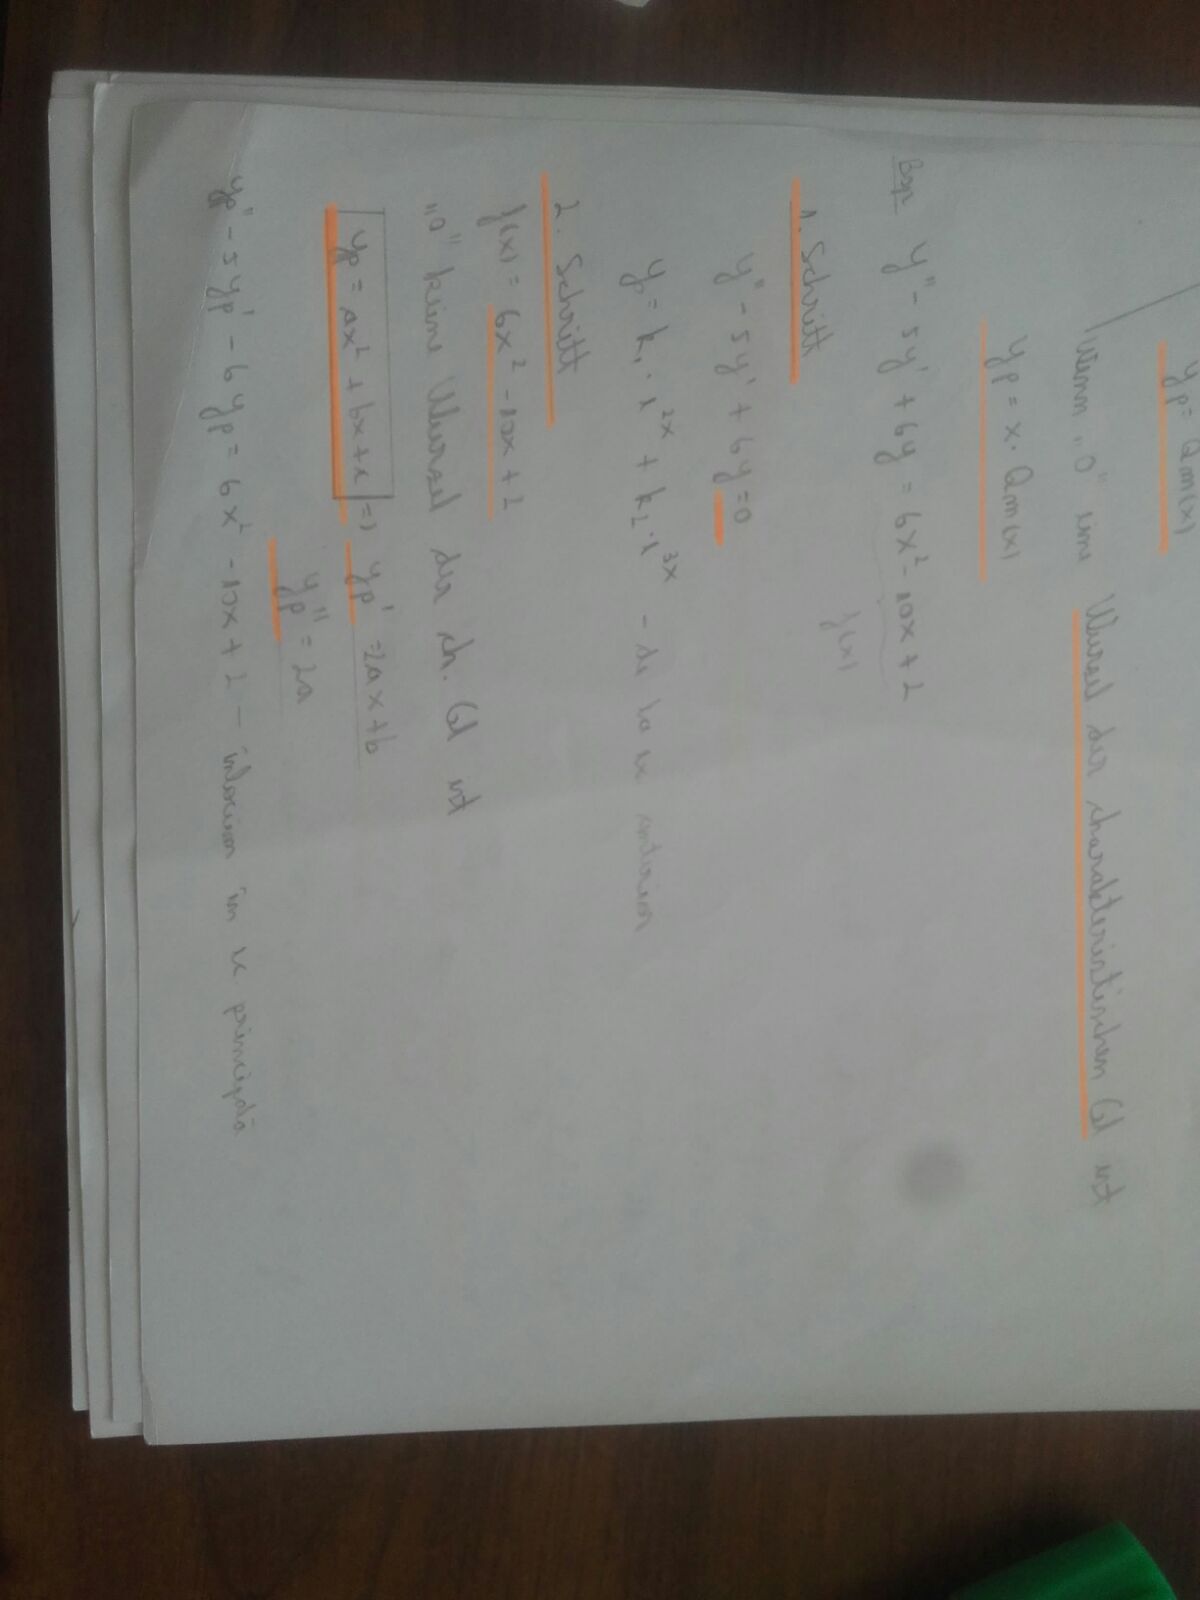 yp = Qm(x)
Wenn „0" eine Wurzel der charakteristischen Gl ist
yp = x · Qm(x)
Bsp y" - 5y' + 6y = 6x² - 10x + 2
f(x)
1. Schritt
y" - 5y' + 6y = 0
y = k₁ · e^2x + k₂ · e^3x - de la ex anterior
2. Schritt
f(x) = 6x² - 10x + 2
„0" keine Wurzel der ch. Gl ist
yp = ax² + bx + c => yp' = 2ax + b
yp" = 2a
yp" - 5yp' - 6yp = 6x² - 10x + 2 - inlocuim în ec principală